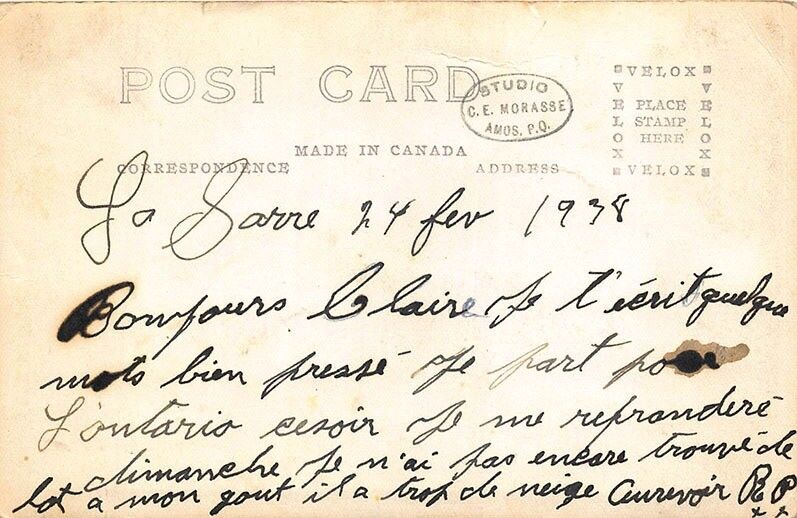 POST CARD
STUDIO
C. E. MORASSE
AMOS, P.Q.
VELOX
VELOX
PLACE
STAMP
HERE
VELOX
VELOX
MADE IN CANADA
CORRESPONDENCE
ADDRESS
La Sarre 24 fev 1938
Bonjours Claire Je t'écrit quelque
mots bien pressé Je part pour
L'ontario cesoir Je me repranderé
dimanche Je n'ai pas encore trouvé de
lot a mon gout il a trop de neige Aurevoir R P
x x